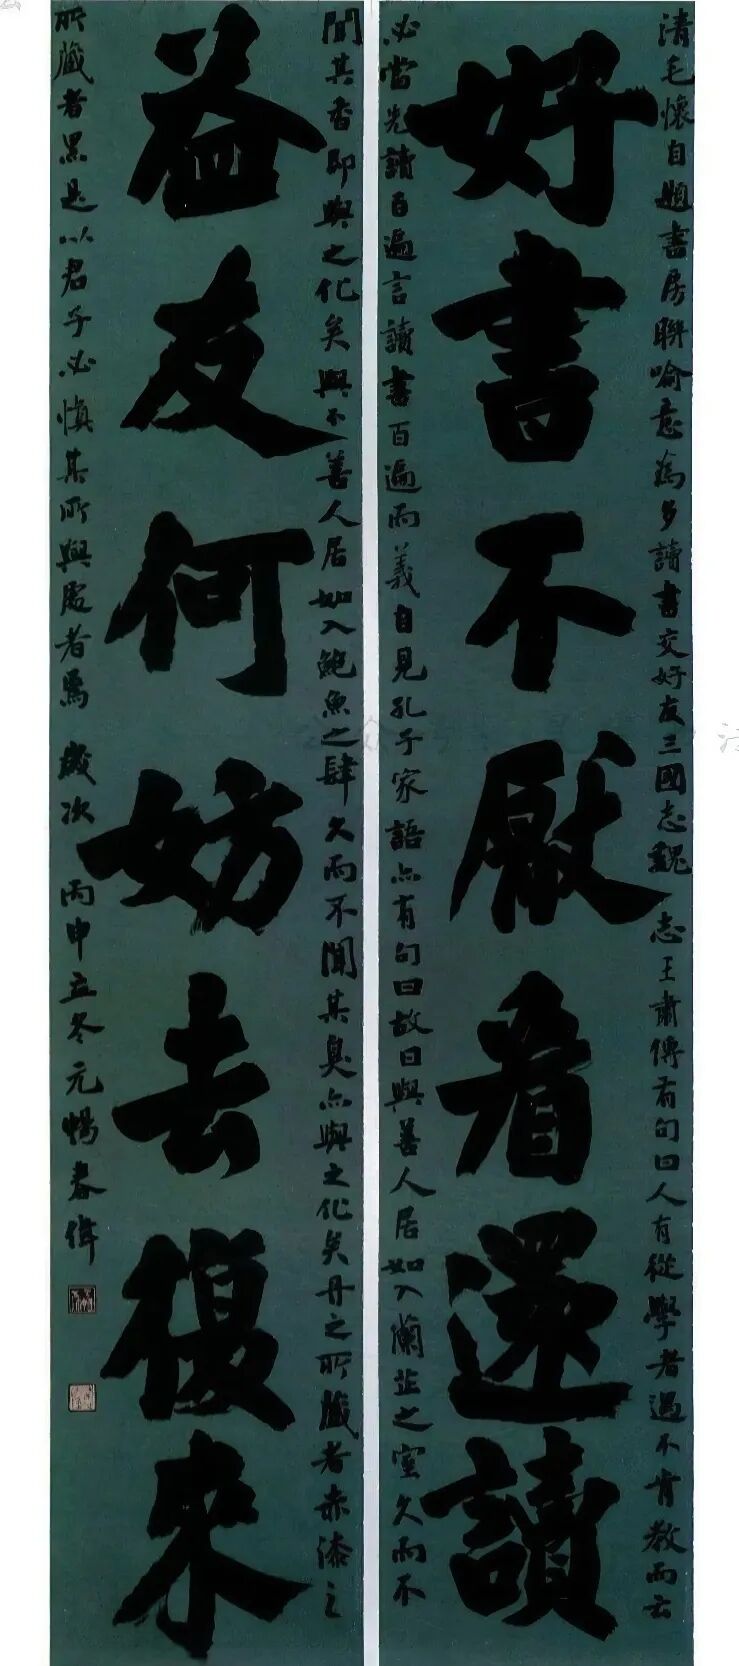 清毛懷自題書房聯喻意為多讀書交好友三國志魏志王肅傳有句曰人有從學者遇不肯教而云
好書不厭看還讀
必當先讀百遍言讀書百遍而義自見孔子家語亦有句曰故曰與善人居如入蘭芷之室久而不
聞其香即與之化矣與不善人居如入鮑魚之肆久而不聞其臭亦與之化矣丹之所藏者赤漆之
益友何妨去復來
所藏者黑是以君子必慎其所與處者焉 歲次丙申立冬元暢春偉